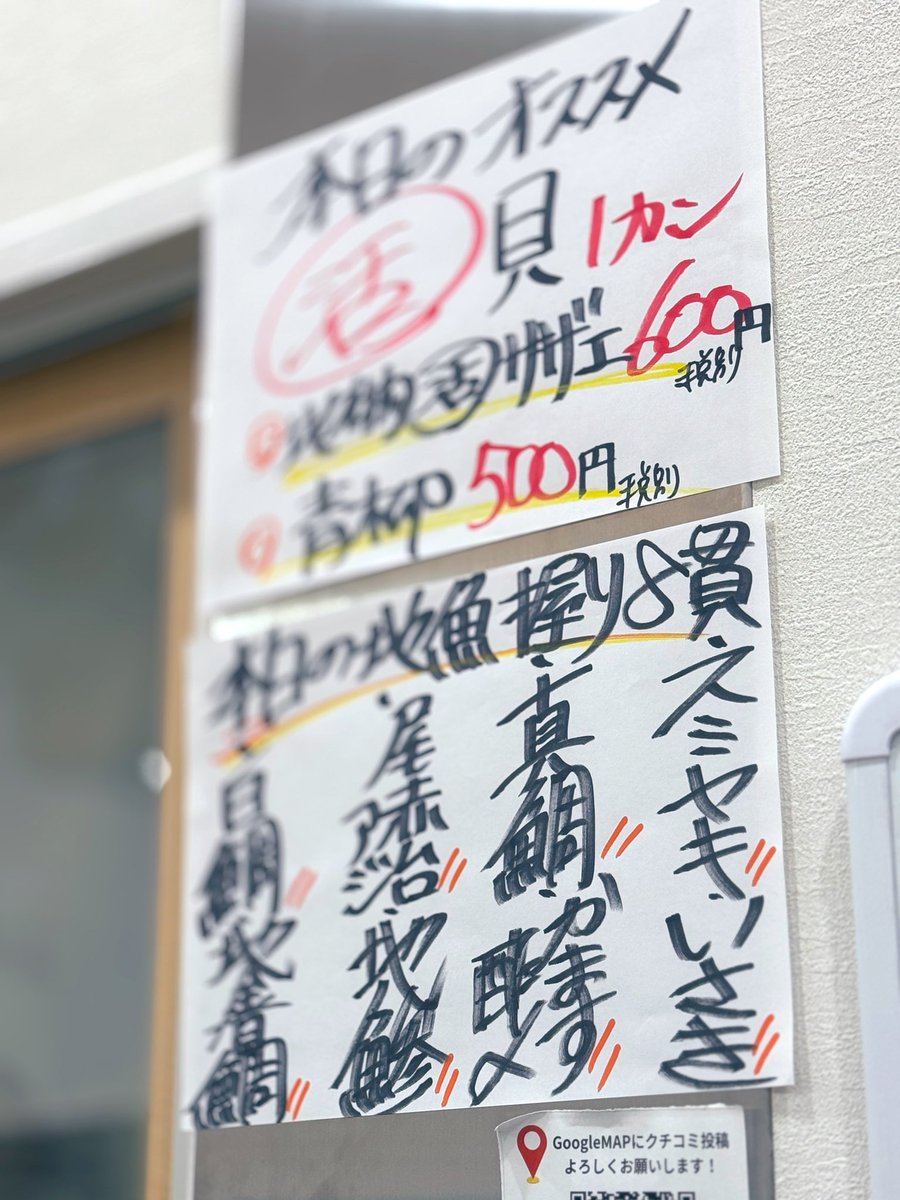 本日のオススメ
活 貝 1カン
① 地物 活 サザエ 600円 税別
② 青柳 500円 税別
本日の地魚握り8貫
・スミヤキ
・いさき
・真鯛
・かます酢〆
・尾赤アジ
・地鯵
・目鯛
GoogleMAPにクチコミ投稿
よろしくお願いします！